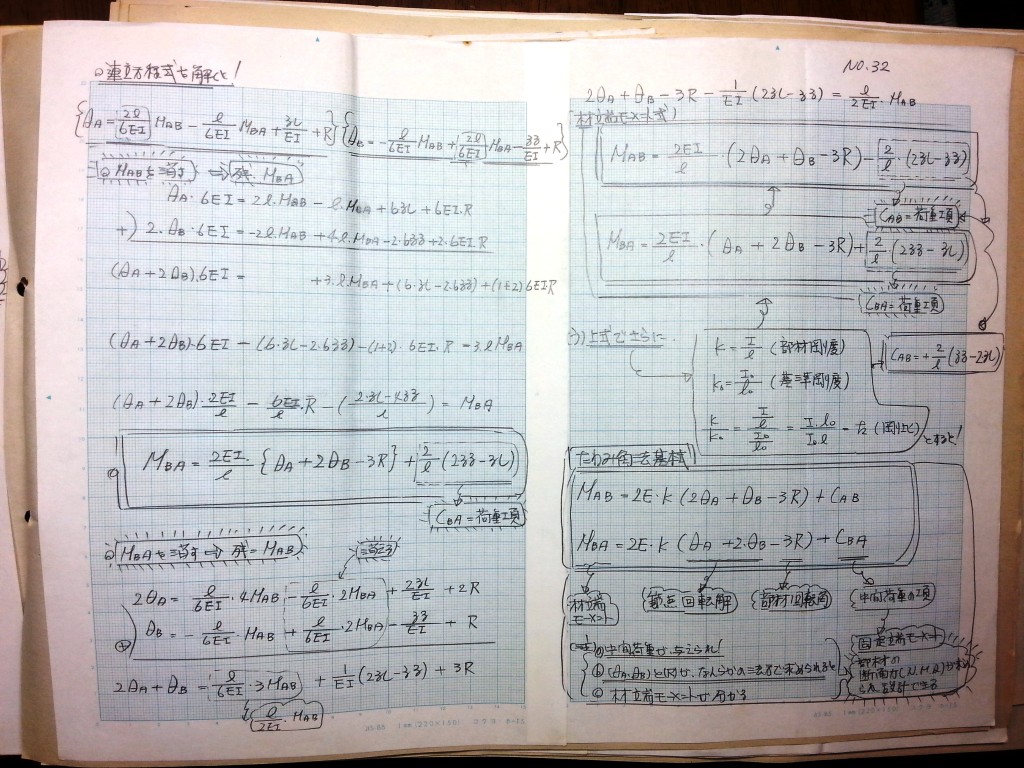 ◎連立方程式を解くと!
{θA = 2l/6EI MAB − l/6EI MBA + 3L/EI + R} {θB = −l/6EI MAB + 2l/6EI MBA − 33/EI + R}
◎ MABを消す ⇒ 残 MBA
θA・6EI = 2l・MAB − l・MBA + 6・3L + 6EI・R
+) 2・θB・6EI = −2l・MAB + 4l・MBA − 2・6・33 + 2・6EI・R
(θA + 2θB)・6EI = + 3・l・MBA + (6・3L − 2・6・33) + (1+2)・6EI・R
(θA + 2θB)・6EI − (6・3L − 2・6・33) − (1+2)・6EI・R = 3・l・MBA
(θA + 2θB)・2EI/l − 6EI/l・R − (2・3L − 4・33 / l) = MBA
MBA = 2EI/l・{θA + 2θB − 3R} + 2/l・(233 − 3L)
CBA = 荷重項
◎ MBAを消す ⇒ 残 = MAB
消える
2θA = l/6EI・4MAB − l/6EI・2MBA + 23L/EI + 2R
+) θB = − l/6EI・MAB + l/6EI・2MBA − 33/EI + R
2θA + θB = l/6EI・3MAB + 1/EI (23L − 33) + 3R
l/2EI・MAB
NO.32
2θA + θB − 3R − 1/EI (23L − 33) = l/2EI・MAB
材端モーメント式)
MAB = 2EI/l・(2θA + θB − 3R) − 2/l・(23L − 33)
CAB = 荷重項
MBA = 2EI/l・(θA + 2θB − 3R) + 2/l (233 − 3L)
CBA = 荷重項
上式でさらに
CAB = + 2/l (33 − 23L)
K = I/l (部材剛度)
K₀ = I₀/l₀ (基準剛度)
K/K₀ = I/l / I₀/l₀ = I・l₀ / I₀・l = k (剛比)
とすると!
たわみ角法基本式
MAB = 2E・K (2θA + θB − 3R) + CAB
MBA = 2E・K (θA + 2・θB − 3R) + CBA
材端モーメント
節点回転角
部材回転角
中間荷重の項
ⓐ 中間荷重が与えられ!
ⓑ (θA,θB)と(R)が、なんらかの方法で求められると
ⓒ 材端モーメントが分かる
固定端モーメント
部材の
断面力(N,M,Q)が求